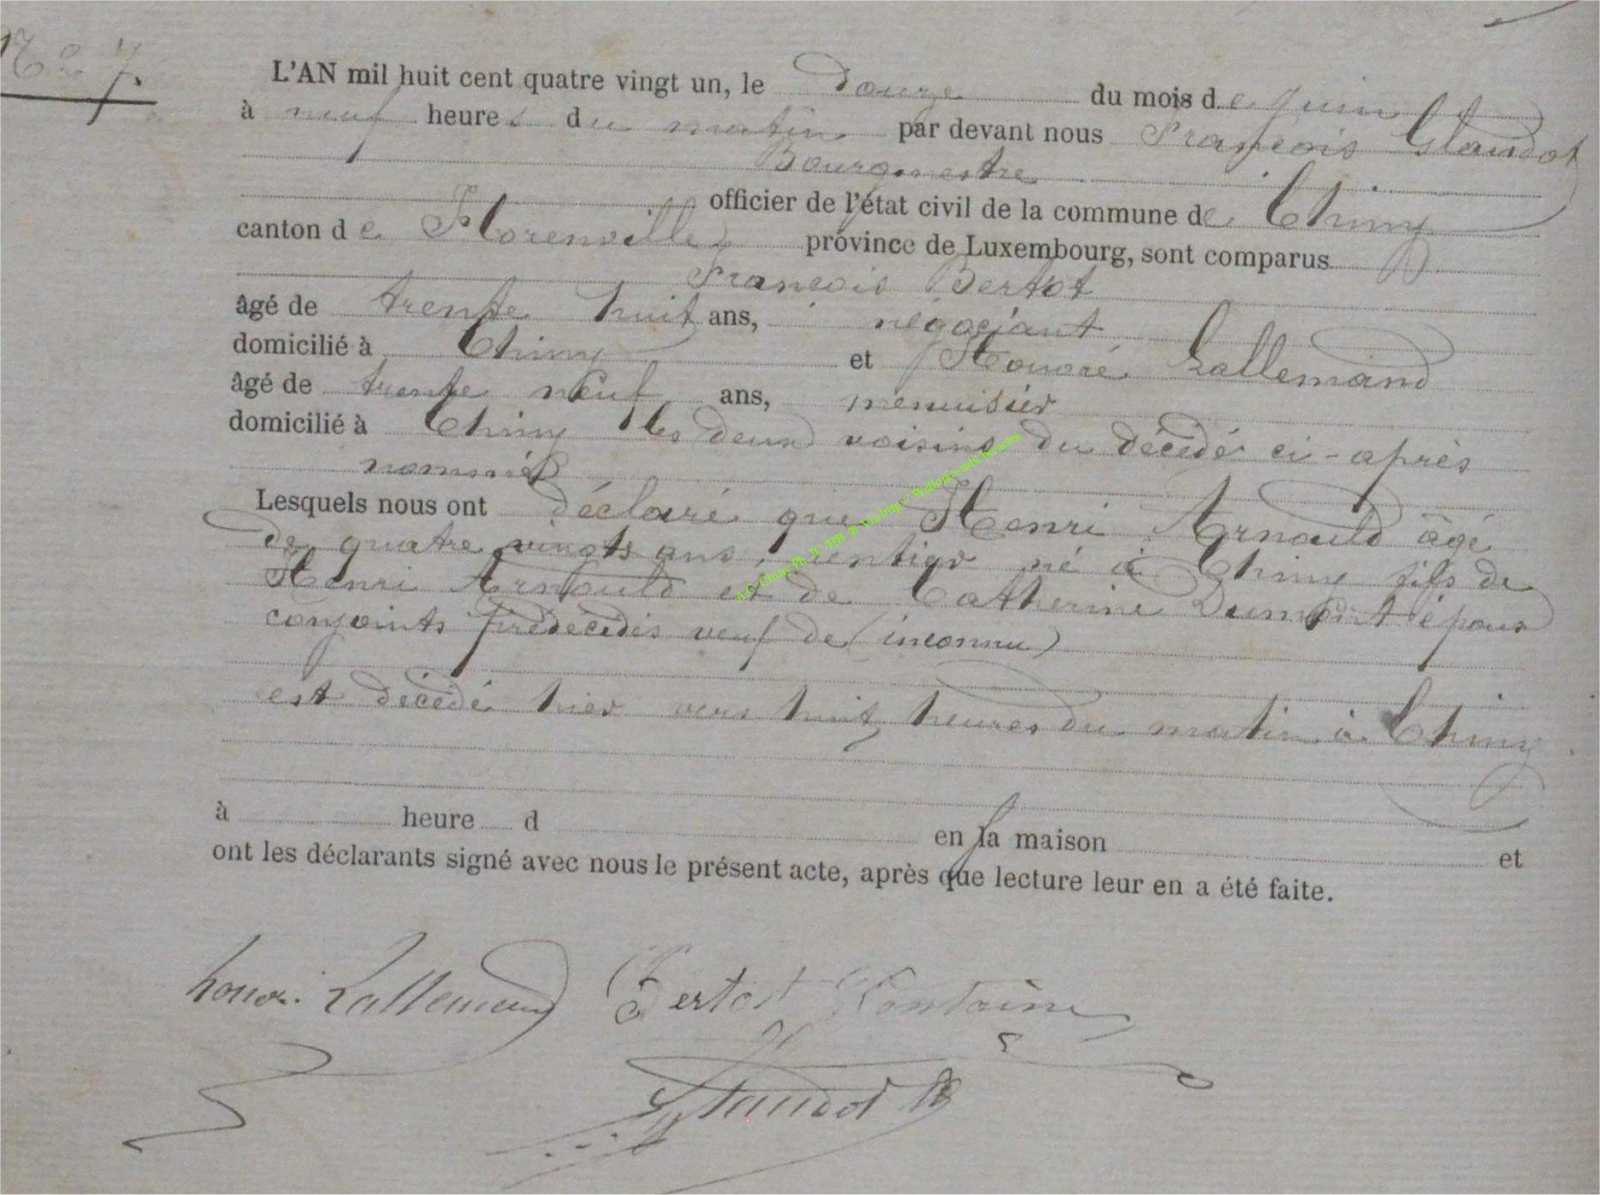 No 7.
L'AN mil huit cent quatre vingt un, le douze du mois de juin
à neuf heures du matin par devant nous François Glaudot
Bourgmestre
officier de l'état civil de la commune de Chiny
canton de Florenville province de Luxembourg, sont comparus
François Bertot
âgé de trente huit ans, négociant
domicilié à Chiny et Honoré Lallemand
âgé de trente neuf ans, menuisier
domicilié à Chiny les deux voisins du décédé ci-après
nommé
Lesquels nous ont déclaré que Henri Arnould âgé
de quatre vingts ans, rentier né à Chiny fils de
Henri Arnould et de Catherine Dumont époux
conjoints prédécédés veuf de (inconnu)
est décédé hier vers huit heures du matin à Chiny
à heure d en la maison et
ont les déclarants signé avec nous le présent acte, après que lecture leur en a été faite.
honoré Lallemand Bertot Fontaine
Glaudot